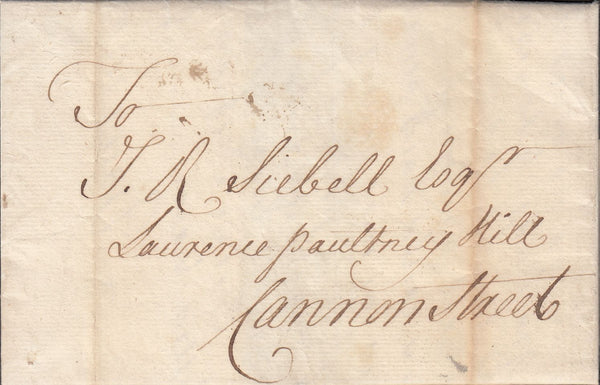 To
T. R Siebell Esqr
Laurence paultney Hill
Cannon Street